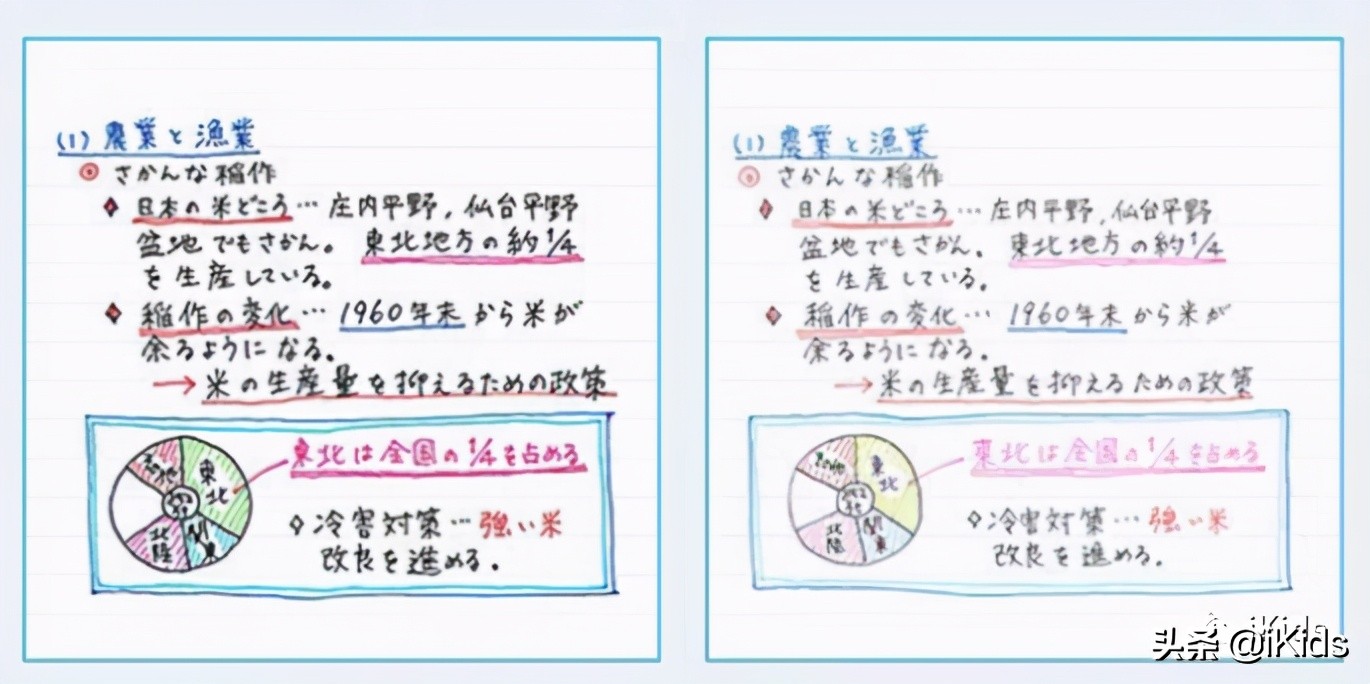 (1) 農業と漁業
◎ さかんな稲作
◆ 日本の米どころ… 庄内平野, 仙台平野
盆地でもさかん。 東北地方の約1/4
を生産している。
◆ 稲作の変化… 1960年末から米が
余るようになる。
→ 米の生産量を抑えるための政策
東北は全国の1/4を占める
その他
東北
北陸
関東
◇ 冷害対策… 強い米
改良を進める。
(1) 農業と漁業
◎ さかんな稲作
◆ 日本の米どころ… 庄内平野, 仙台平野
盆地でもさかん。 東北地方の約1/4
を生産している。
◆ 稲作の変化… 1960年末から米が
余るようになる。
→ 米の生産量を抑えるための政策
東北は全国の1/4を占める
その他
東北
北陸
関東
◇ 冷害対策… 強い米
改良を進める。
头条 @iKids